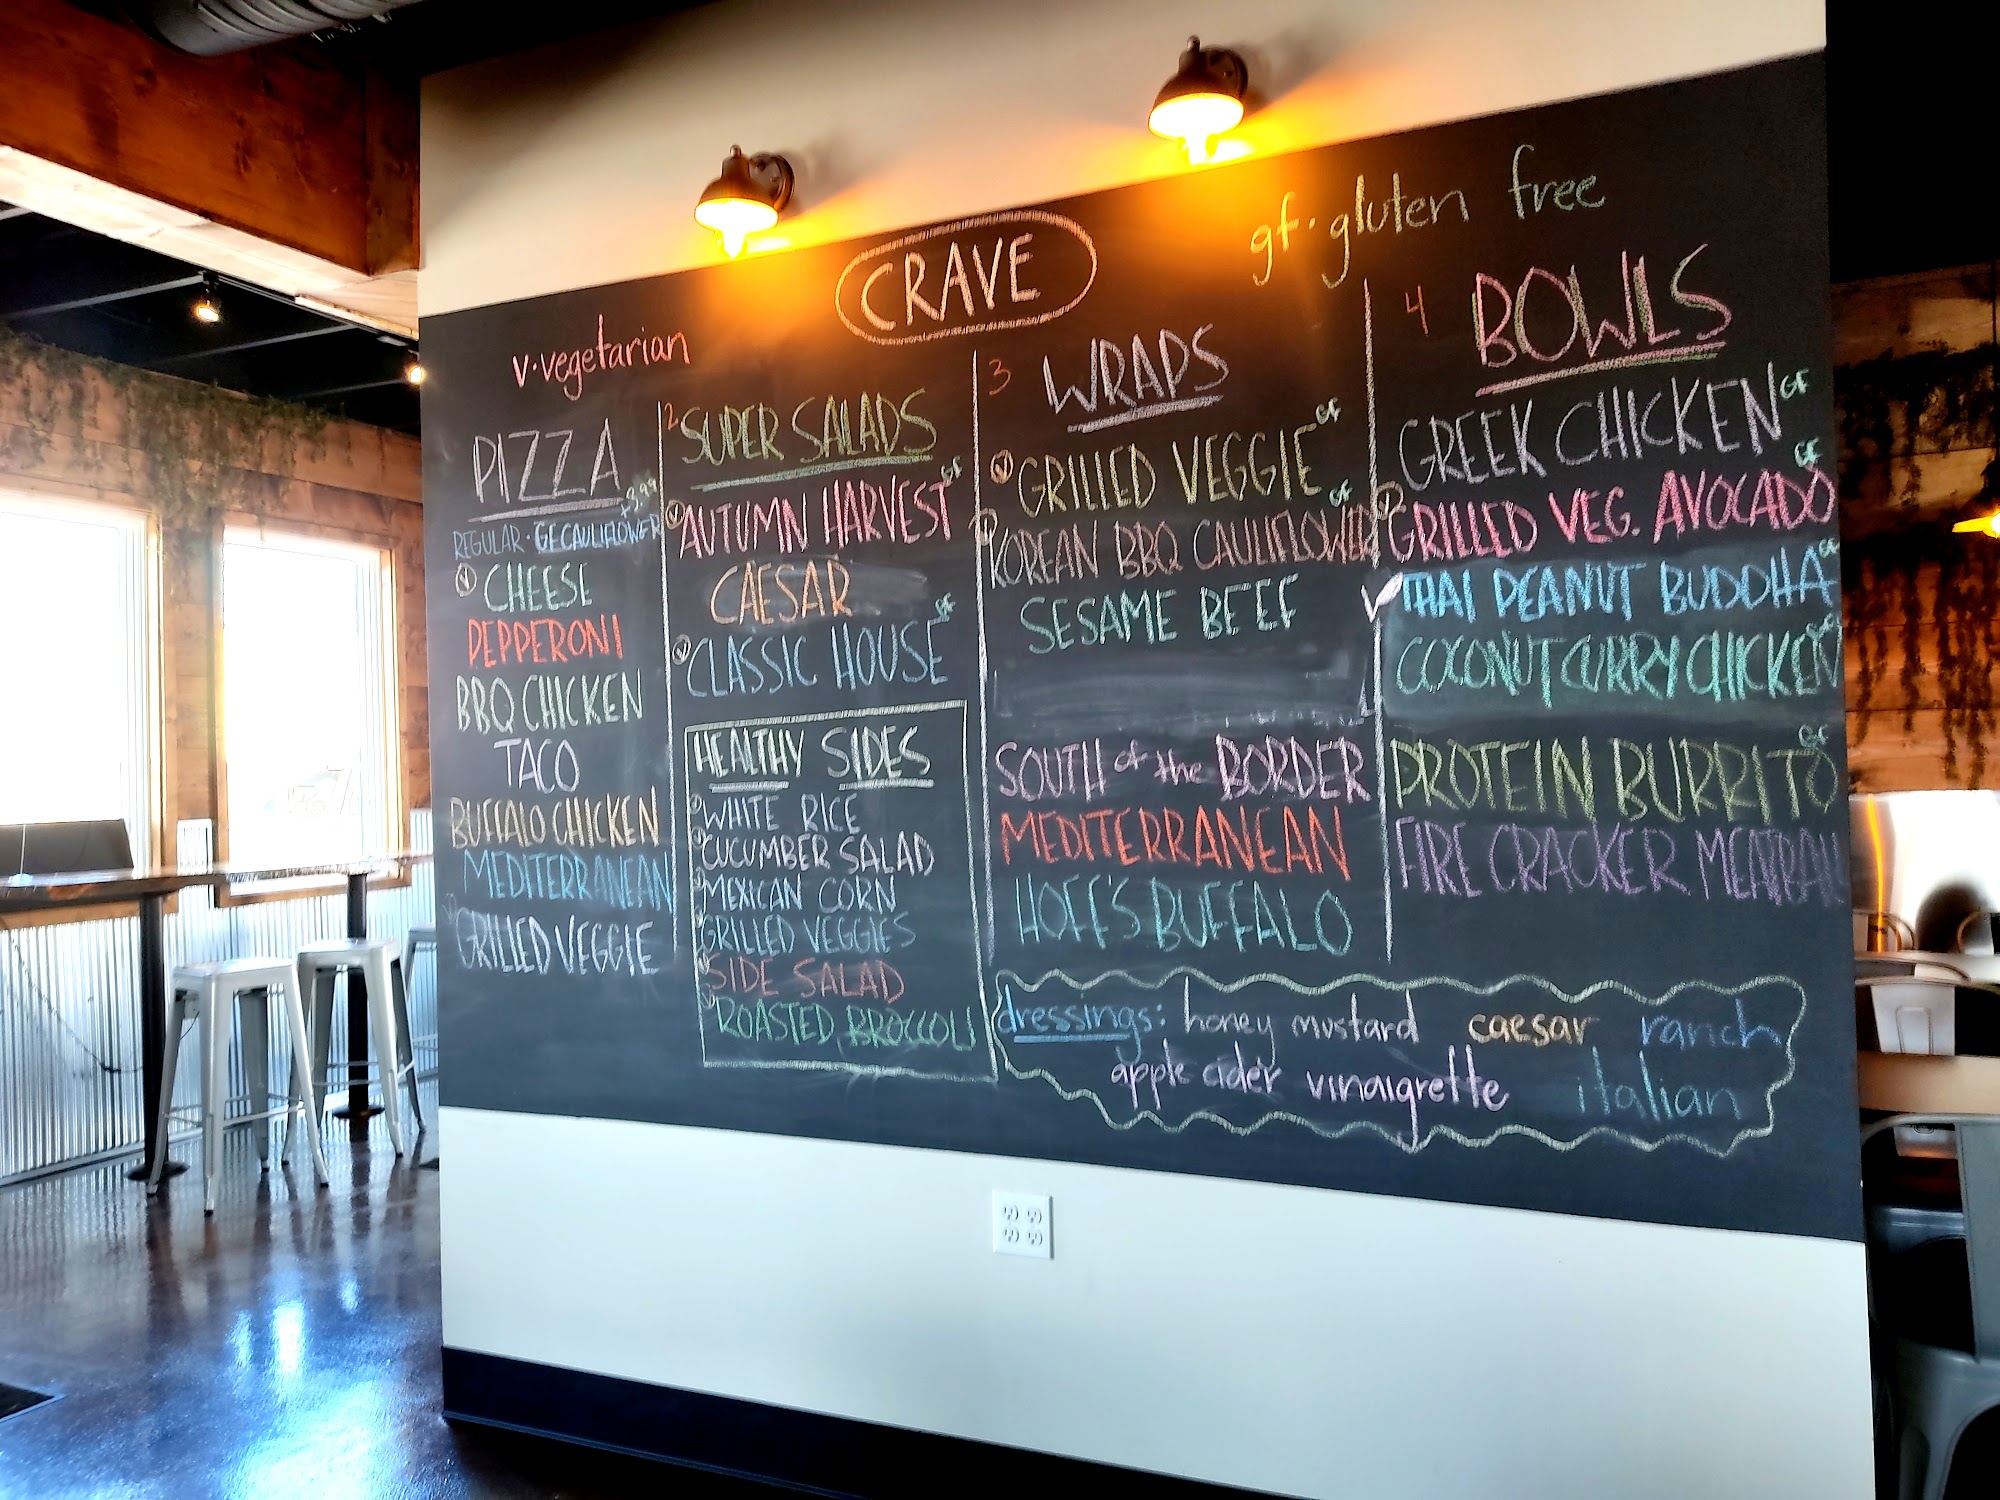 CRAVE
v·vegetarian
gf·gluten free
PIZZA
+3.99
REGULAR · GF CAULIFLOWER
V CHEESE
PEPPERONI
BBQ CHICKEN
TACO
BUFFALO CHICKEN
MEDITERRANEAN
GRILLED VEGGIE
2 SUPER SALADS
V AUTUMN HARVEST GF
CAESAR
V CLASSIC HOUSE GF
HEALTHY SIDES
V WHITE RICE
V CUCUMBER SALAD
V MEXICAN CORN
V GRILLED VEGGIES
V SIDE SALAD
V ROASTED BROCCOLI
3 WRAPS
V GRILLED VEGGIE GF
V KOREAN BBQ CAULIFLOWER GF
SESAME BEEF
SOUTH of the BORDER
MEDITERRANEAN
HOFF'S BUFFALO
4 BOWLS
GREEK CHICKEN GF
V GRILLED VEG. AVOCADO GF
V THAI PEANUT BUDDHA GF
COCONUT CURRY CHICKEN GF
PROTEIN BURRITO GF
FIRE CRACKER MEATBALL
dressings: honey mustard caesar ranch
apple cider vinaigrette italian